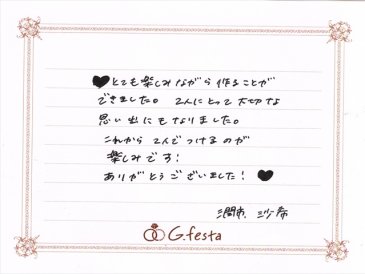 ♥とても楽しみながら作ることが
できました。2人にとって大切な
思い出にもなりました。
これから2人でつけるのが
楽しみです!
ありがとうございました! ♥
G.festa